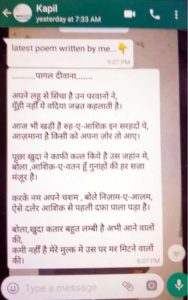 Kapil
yesterday at 7:33 AM
latest poem written by me...👇
9:07 PM
........पागल दीवाना.......
अपने लहू से सिंचा है उन परवानो ने,
यूँही नहीं ये वदिया जन्नत कहलाती है।
आज भी खड़ी है रुह-ए-आशिक़ इन सरहदों पे,
आज़माना है किसी को अपना ज़ोर तो आए।
पूछा खुदा ने काफी कत्ल किये है उस जहांन मे,
बोला ,आशिक़-ए-वतन हूँ गुनाहों की हर सज़ा
मंज़ूर है।
करके नम अपने चशम , बोले निज़ाम-ए-आलम,
ऐसे दलेर आशिक़ से पहली दफ़ा पाला पड़ा है।
बोला,खुदा कतार बहुत लम्बी है अभी आने वालों
की,
कमी नहीं है मेरे मुल्क मे उस पर मर मिटने वालों
की।
9:07 PM
Type a message